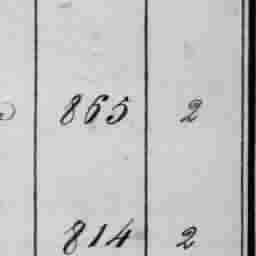 865 2
814 2